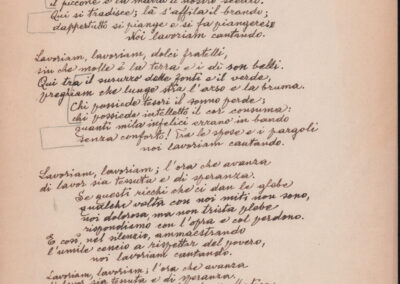 il piccone e la marra il nostro
Qui si tradisce; là s'affila il brando;
dappertutto si piange e si fa piangere;
Noi lavoriam cantando.
Lavoriam, lavoriam, dolci fratelli,
sin che molle è la terra e i dì son belli.
Qui tra il susurro delle fonti e il verde,
preghiam che lunge stia l'orso e la bruma.
Chi possiede tesori il sonno perde;
chi possiede intelletto il cor consuma:
quanti mila infelici errano in bando
senza conforto! Tra le spose e i pargoli
noi lavoriam cantando.
Lavoriam, lavoriam; l'ora che avanza
di lavor sia tessuta e di speranza.
Se questi ricchi che ci dan le glebe
qualche volta con noi miti non sono,
noi dolorosa, ma non trista plebe
rispondiamo con l'opra e col perdono.
E così, nel silenzio, ammaestrando
l'umile cencio a rispettar del povero,
noi lavoriam cantando.
Lavoriam, lavoriam; l'ora che avanza
di lavor sia tessuta e di speranza.